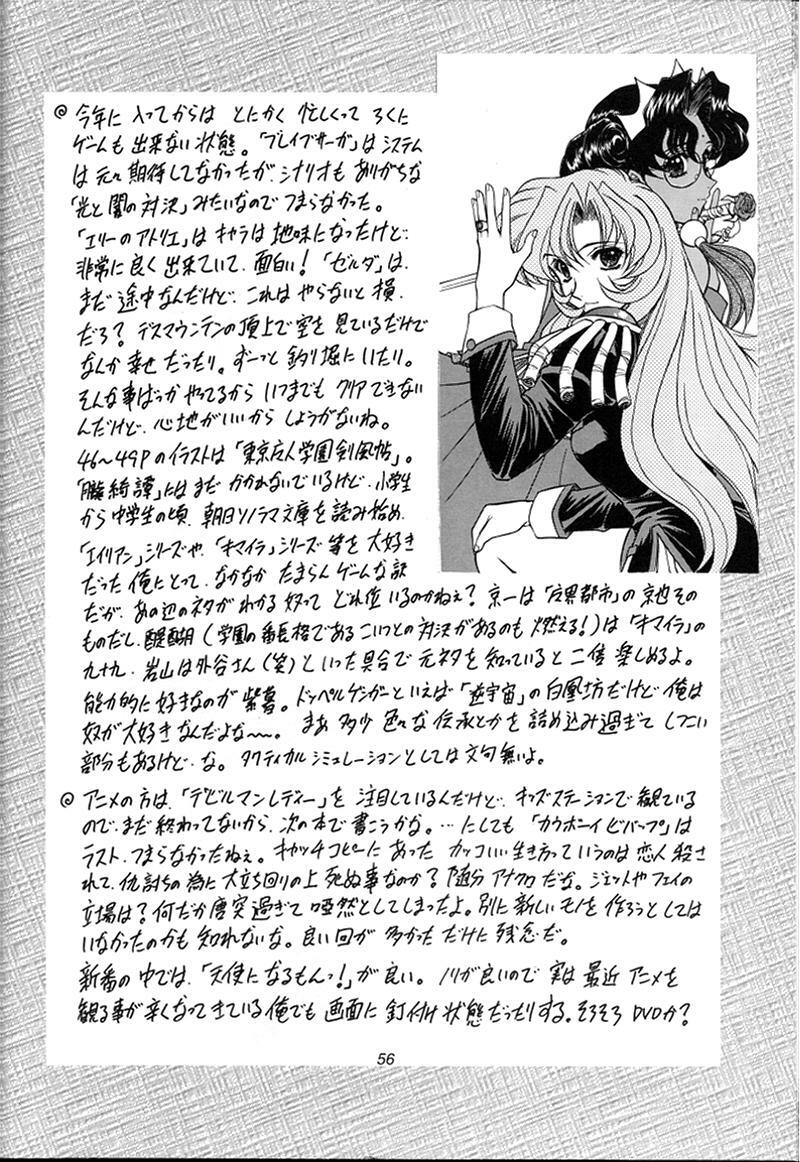 ◎今年に入ってからは とにかく 忙しくって ろくに
ゲームも出来ない状態。「ブレイブサーガ」はシステム
は元々期待してなかったが、シナリオも ありがちな
「光と闇の対決」みたいなので つまらなかった。
「エリーのアトリエ」は キャラは 地味になったけど
非常に良く出来ていて、面白い!「ゼルダ」は、
まだ途中なんだけど、これは やらないと損
だろ? デスマウンテンの頂上で空を見ているだけで
なんか幸せだったり。ずーっと釣り堀にいたり。
そんな事ばっかやってるから いつまでも クリアできない
んだけど、心地がいいから しょうがないね。
46〜49Pのイラストは「東京魔人学園剣風帖」。
「朧綺譚」にはまだ かかれないでいるけど、小学生
から中学生の頃、朝日ソノラマ文庫を読み始め、
「エイリアン」シリーズや、「キマイラ」シリーズ等を大好き
だった俺にとって、なかなか たまらんゲームな訳
だが、あの辺のネタがわかる奴って どれ位いるのかねぇ? 京一は「魔界都市」の京也その
ものだし、醍醐(学園の番長格である こいつとの対決があるのも 燃える!)は「キマイラ」の
九十九、岩山は外谷さん(笑)といった具合で元ネタを知っていると二倍楽しめるよ。
能力的に好きなのが紫暮。ドッペルゲンガーといえば「逆宇宙」の白凰坊だけど俺は
奴が大好きなんだよな〜〜。 まあ多少色々な伝承とかを詰め込み過ぎて しつこい
部分もあるけど、な。タクティカルシミュレーションとしては文句無いよ。
◎アニメの方は、「デビルマンレディー」を注目しているんだけど、キッズステーションで観ている
ので、まだ終わってないから、次の本で書こうかな。…にしても「カウボーイビバップ」は
ラスト、つまらなかったねぇ。キャッチコピーにあった カッコいい生き方っていうのは恋人殺さ
れて、仇討ちの為に大立ち回りの上死ぬ事なのか? 随分アナクロだな。ジェットやフェイの
立場は? 何だか唐突過ぎて 唖然としてしまったよ。別に新しいモノを作ろうとしては
いなかったのかも知れないな。良い回が多かっただけに残念だ。
新番の中では、「天使になるもんっ!」が良い。ノリが良いので実は最近アニメを
観る事が辛くなってきている俺でも画面に釘付け状態だったりする。そろそろDVDか?
56